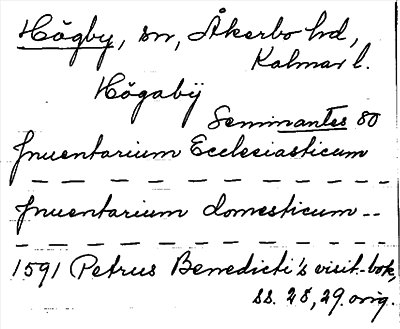 Högby, sn, Åkerbo hd,
Kalmar l.
Högabÿ
Seminantes 80
Inuentarium Ecclesiasticum
Inuentarium domesticum --
1591 Petrus Benedicti's visit.-bok,
ss. 28, 29. orig.